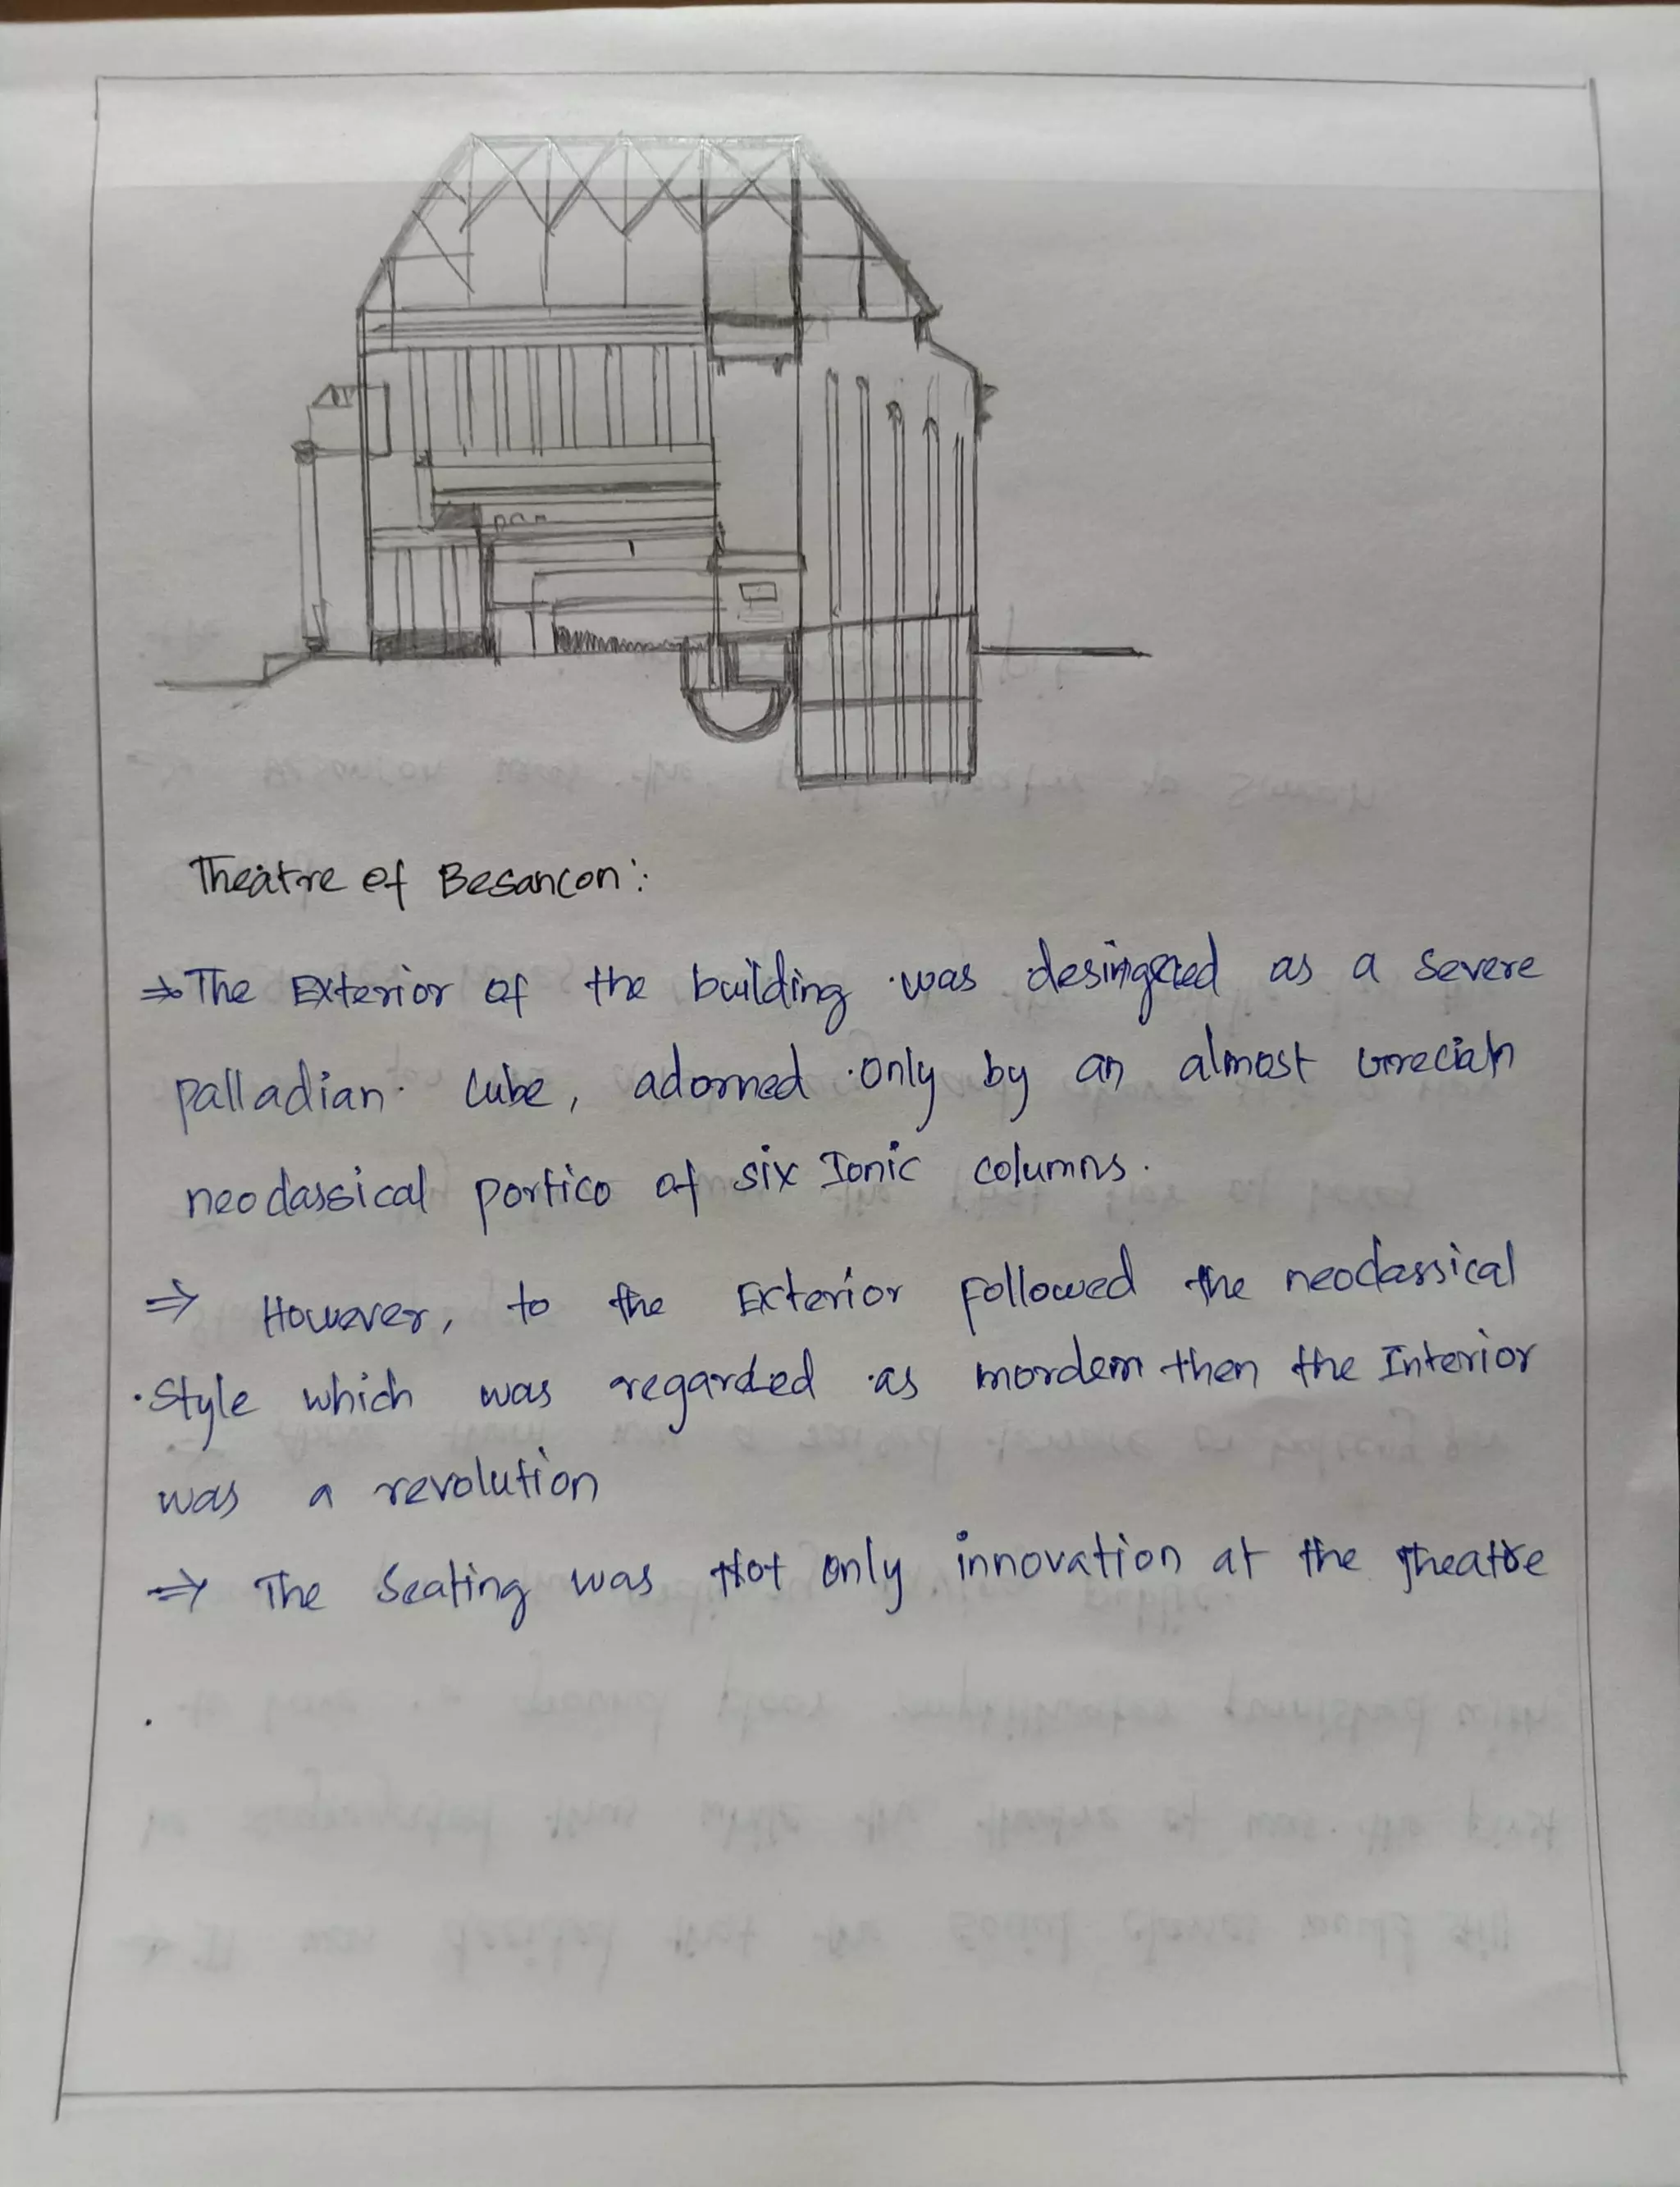 Theatre of Besancon:
⇒ The Exterior of the building was desingned as a severe
palladian cube, adorned only by an almost Grecian
neoclassical portico of six Ionic columns.
⇒ However, to the Exterior followed the neoclassical
style which was regarded as mordern then the Interior
was a revolution
⇒ The Seating was Not only innovation at the Theatre